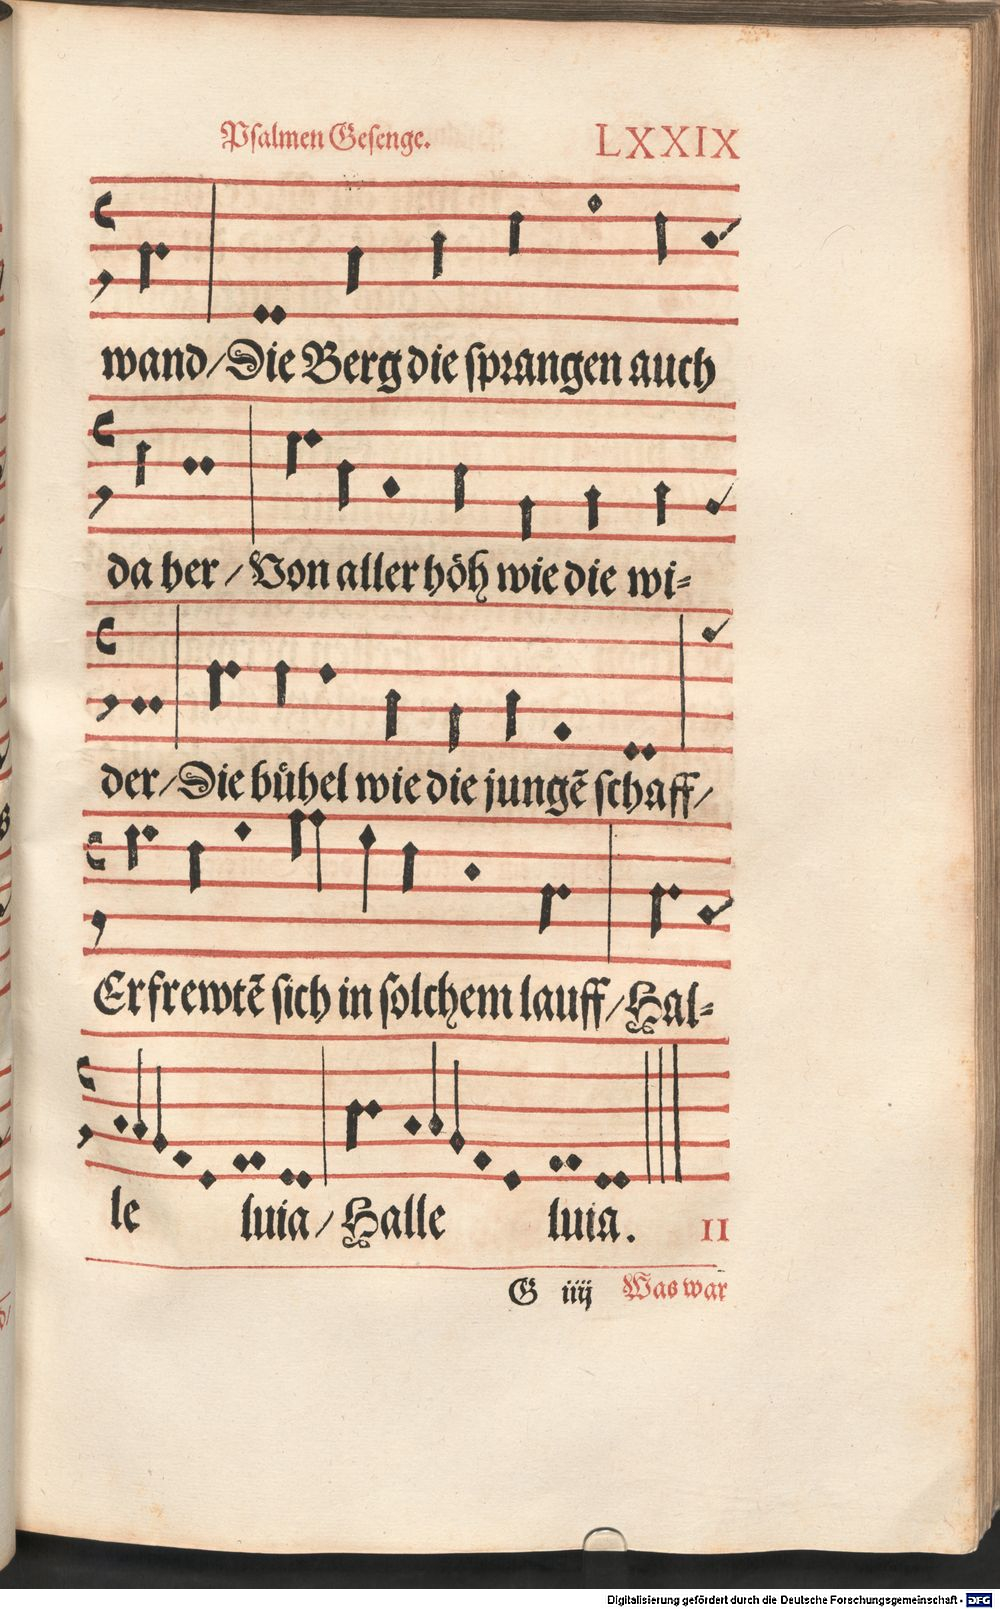 Psalmen Gesenge. LXXIX
wand/Die Berg die sprangen auch
da her/Von aller höh wie die wi⸗
der/Die bühel wie die jungẽ schaff/
Erfrewtẽ sich in solchem lauff/Hal⸗
le luia/Halle luia. II
G iiij Was war
Digitalisierung gefördert durch die Deutsche Forschungsgemeinschaft - DFG